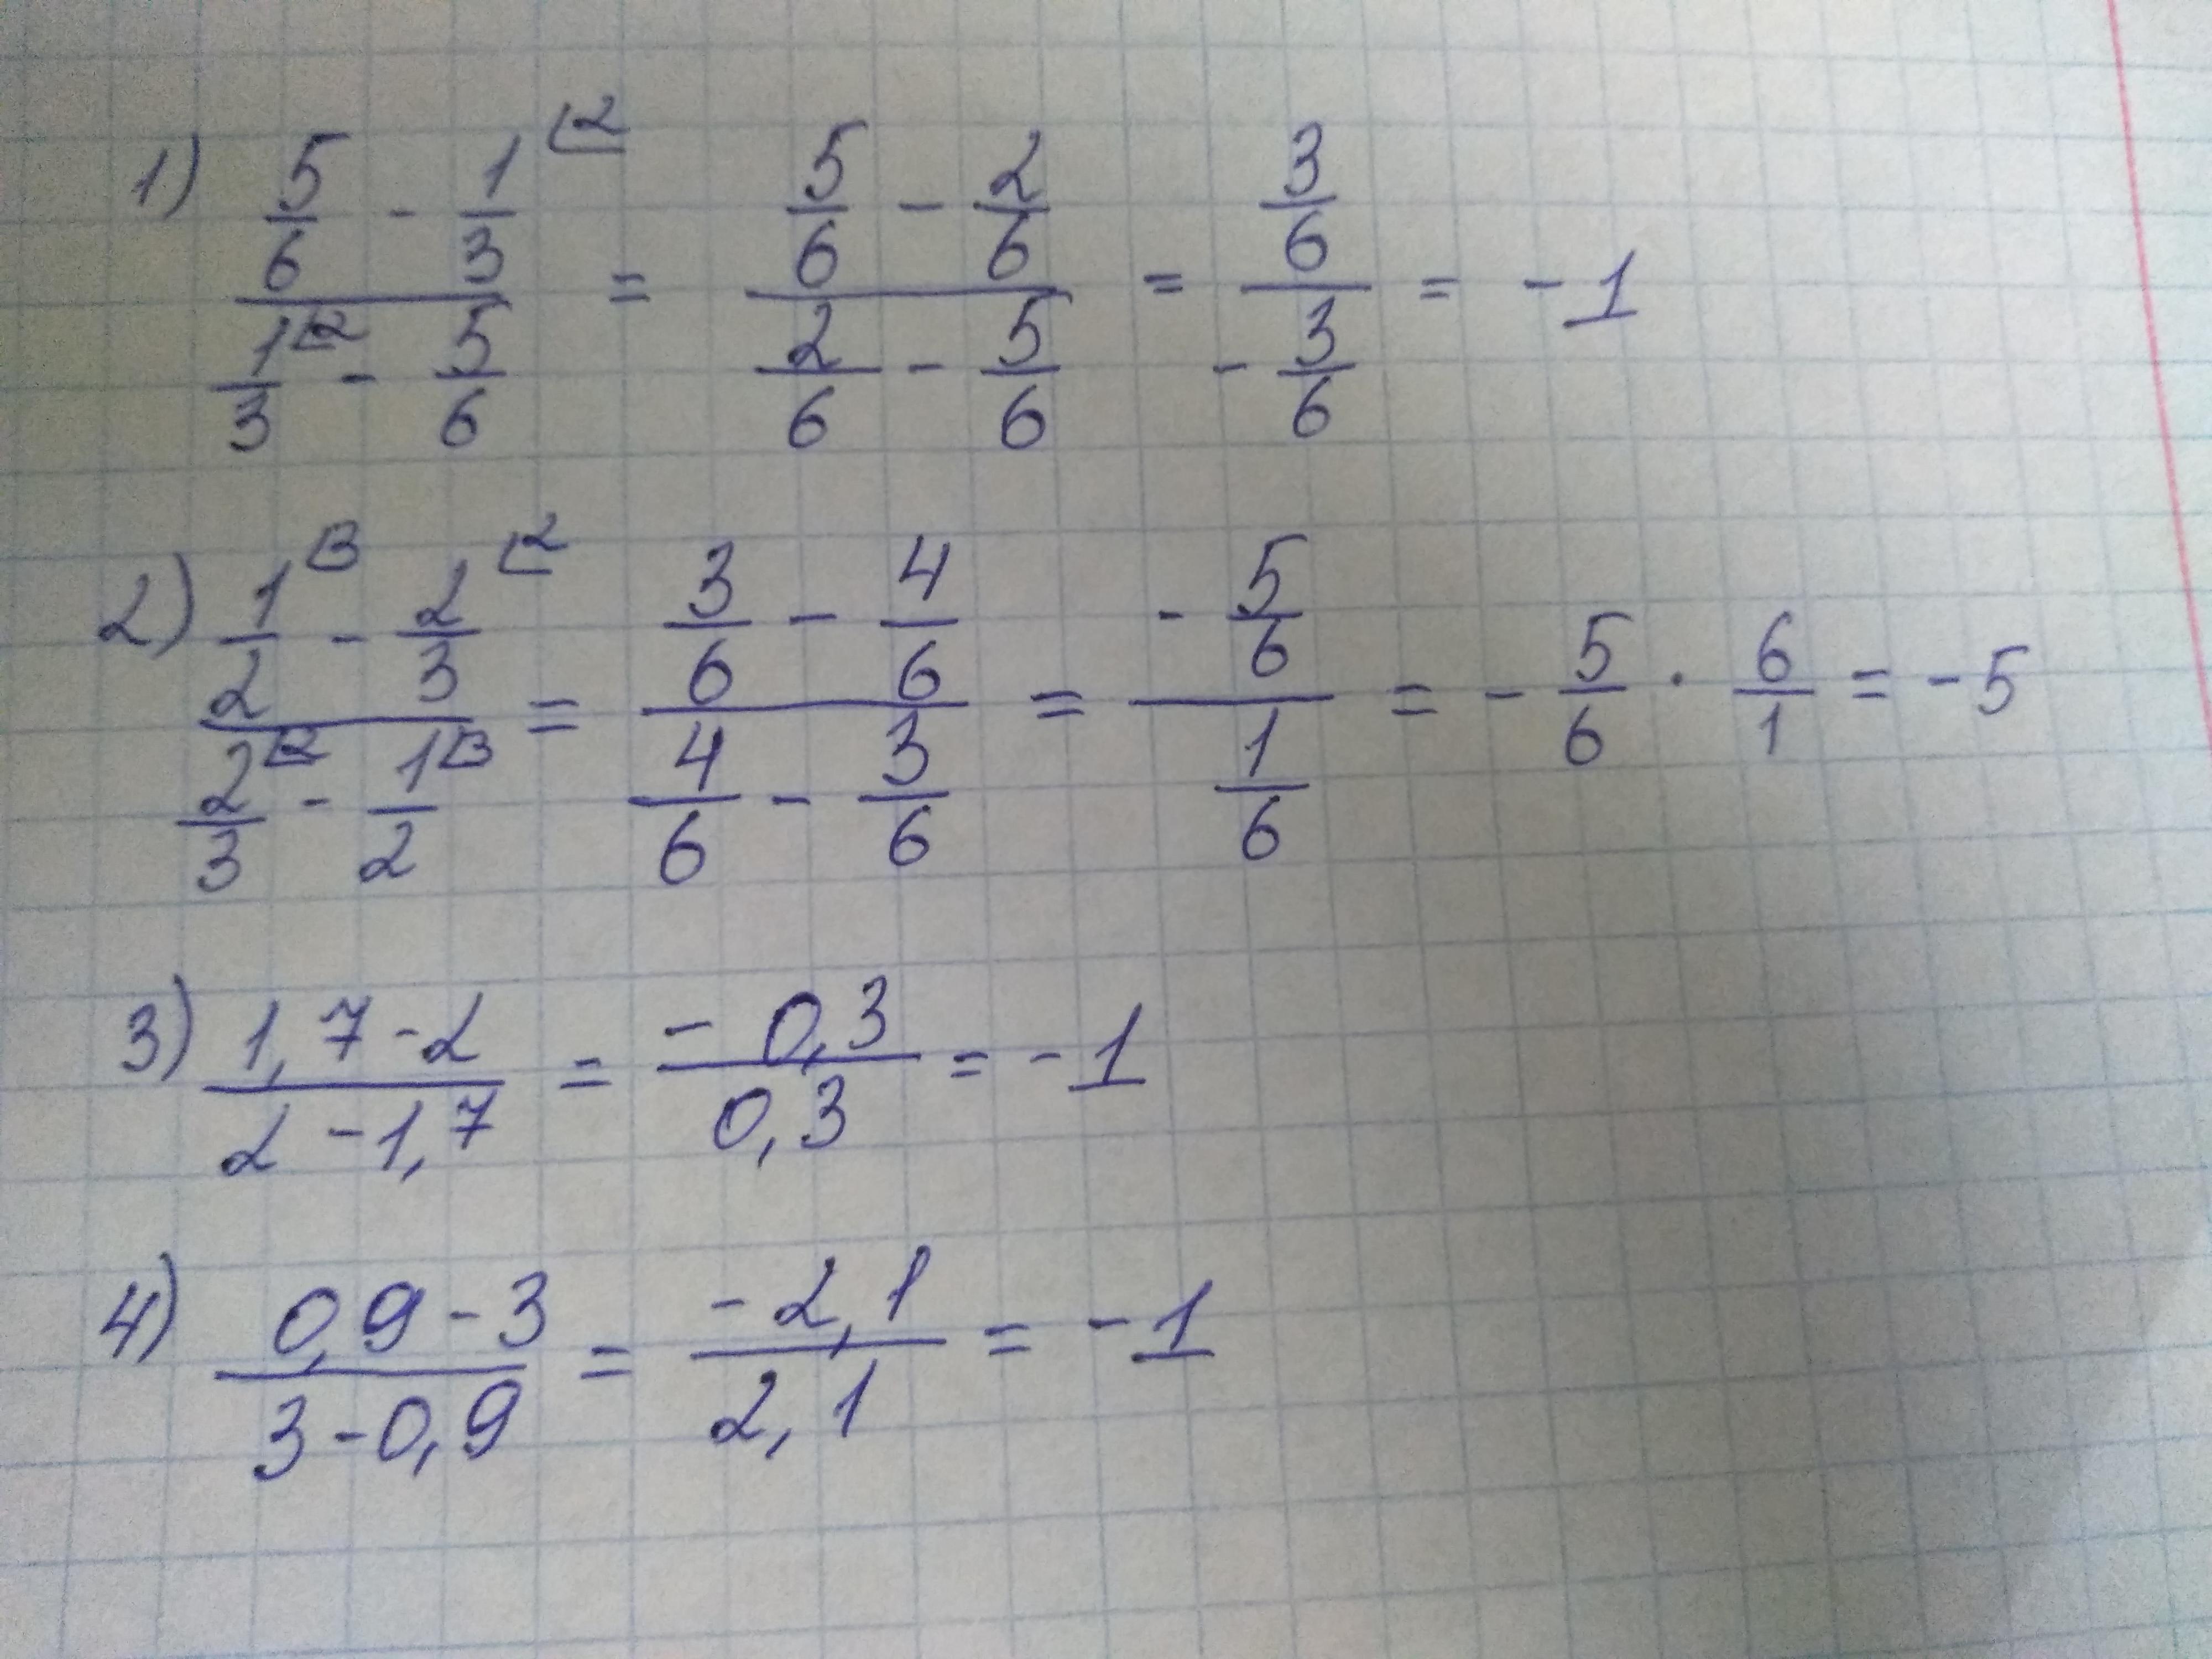 1) (5/6 - 1/3 ⌊2) / (1/3 ⌊2 - 5/6) = (5/6 - 2/6) / (2/6 - 5/6) = (3/6) / (- 3/6) = - 1
2) (1/2 ⌊3 - 2/3 ⌊2) / (2/3 ⌊2 - 1/2 ⌊3) = (3/6 - 4/6) / (4/6 - 3/6) = (- 5/6) / (1/6) = - 5/6 · 6/1 = - 5
3) (1,7 - 2) / (2 - 1,7) = (- 0,3) / (0,3) = - 1
4) (0,9 - 3) / (3 - 0,9) = (- 2,1) / (2,1) = - 1